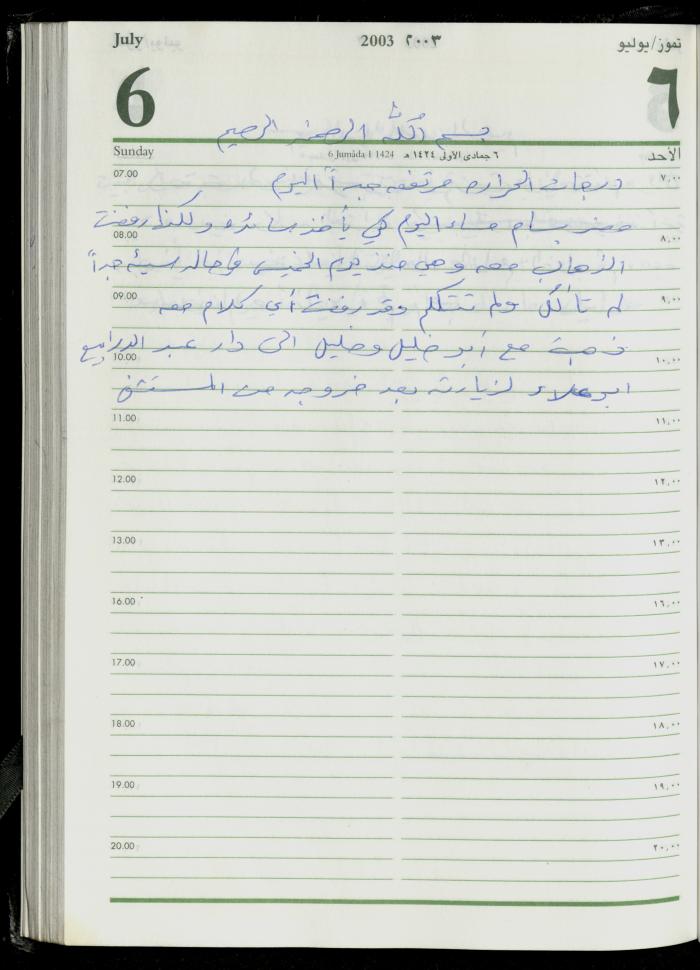 July 2003 ٢٠٠٣ تموز/يوليو
6 ٦
بسم الله الرحمن الرحيم
Sunday 6 Jumâda I 1424 ٦ جمادى الأولى ١٤٢٤ هـ الأحد
07.00 ٧,٠٠
درجات الحراره مرتفعه جداً اليوم
حضر بسام مساء اليوم كي يأخذ سائده ولكنها رفضت
08.00 ٨,٠٠
الذهاب معه وهي منذ يوم الخميس في حاله سيئه جداً
09.00 ٩,٠٠
لم تأكل ولم تتكلم وقد رفضت أي كلام معه
ذهبت مع أبو خليل وخليل الى دار عبد الرابع
10.00 ١٠,٠٠
ابو علاء لزيارته بعد خروجه من المستشفى
11.00 ١١,٠٠
12.00 ١٢,٠٠
13.00 ١٣,٠٠
16.00 ١٦,٠٠
17.00 ١٧,٠٠
18.00 ١٨,٠٠
19.00 ١٩,٠٠
20.00 ٢٠,٠٠